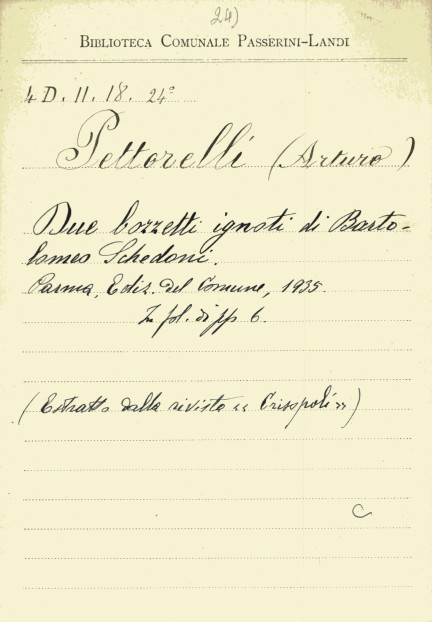 24)
BIBLIOTECA COMUNALE PASSERINI-LANDI
4 D. 11. 18. 24º
Pettorelli (Arturo)
Due bozzetti ignoti di Barto-
lomeo Schedoni.
Parma, Ediz. del Comune, 1935.
In fol. di pp 6.
(Estratto dalla rivista « Crisopoli »)
C